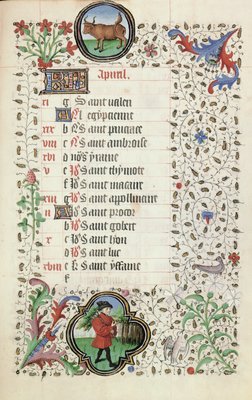 Apuril.
xi g Saint ualeri
A egypcienne
xix b Saint pancace
viii c Saint ambroise
xvi d
v e Saint thymote
f Saint macaire
xiii g Saint apollinaire
ii A Saint procor
b Saint gobert
x c Saint lyon
d Saint luc
xviii e Saint yffaine
f